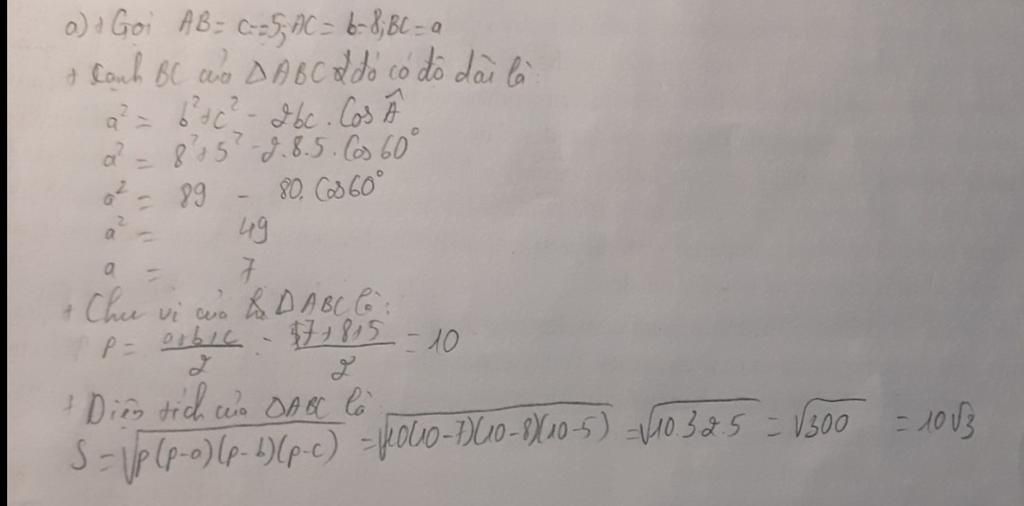 a) + Gọi AB = c = 5; AC = b = 8; BC = a
+ Cạnh BC của ΔABC đó có độ dài là:
a² = b² + c² - 2bc . Cos Â
a² = 8² + 5² - 2.8.5. Cos 60°
a² = 89 - 80. Cos 60°
a² = 49
a = 7
+ Chu vi của ΔABC là:
P = (a+b+c)/2 = (7+8+5)/2 = 10
+ Diện tích của ΔABC là
S = √(p(p-a)(p-b)(p-c)) = √(10(10-7)(10-8)(10-5)) = √(10.3.2.5) = √300 = 10√3